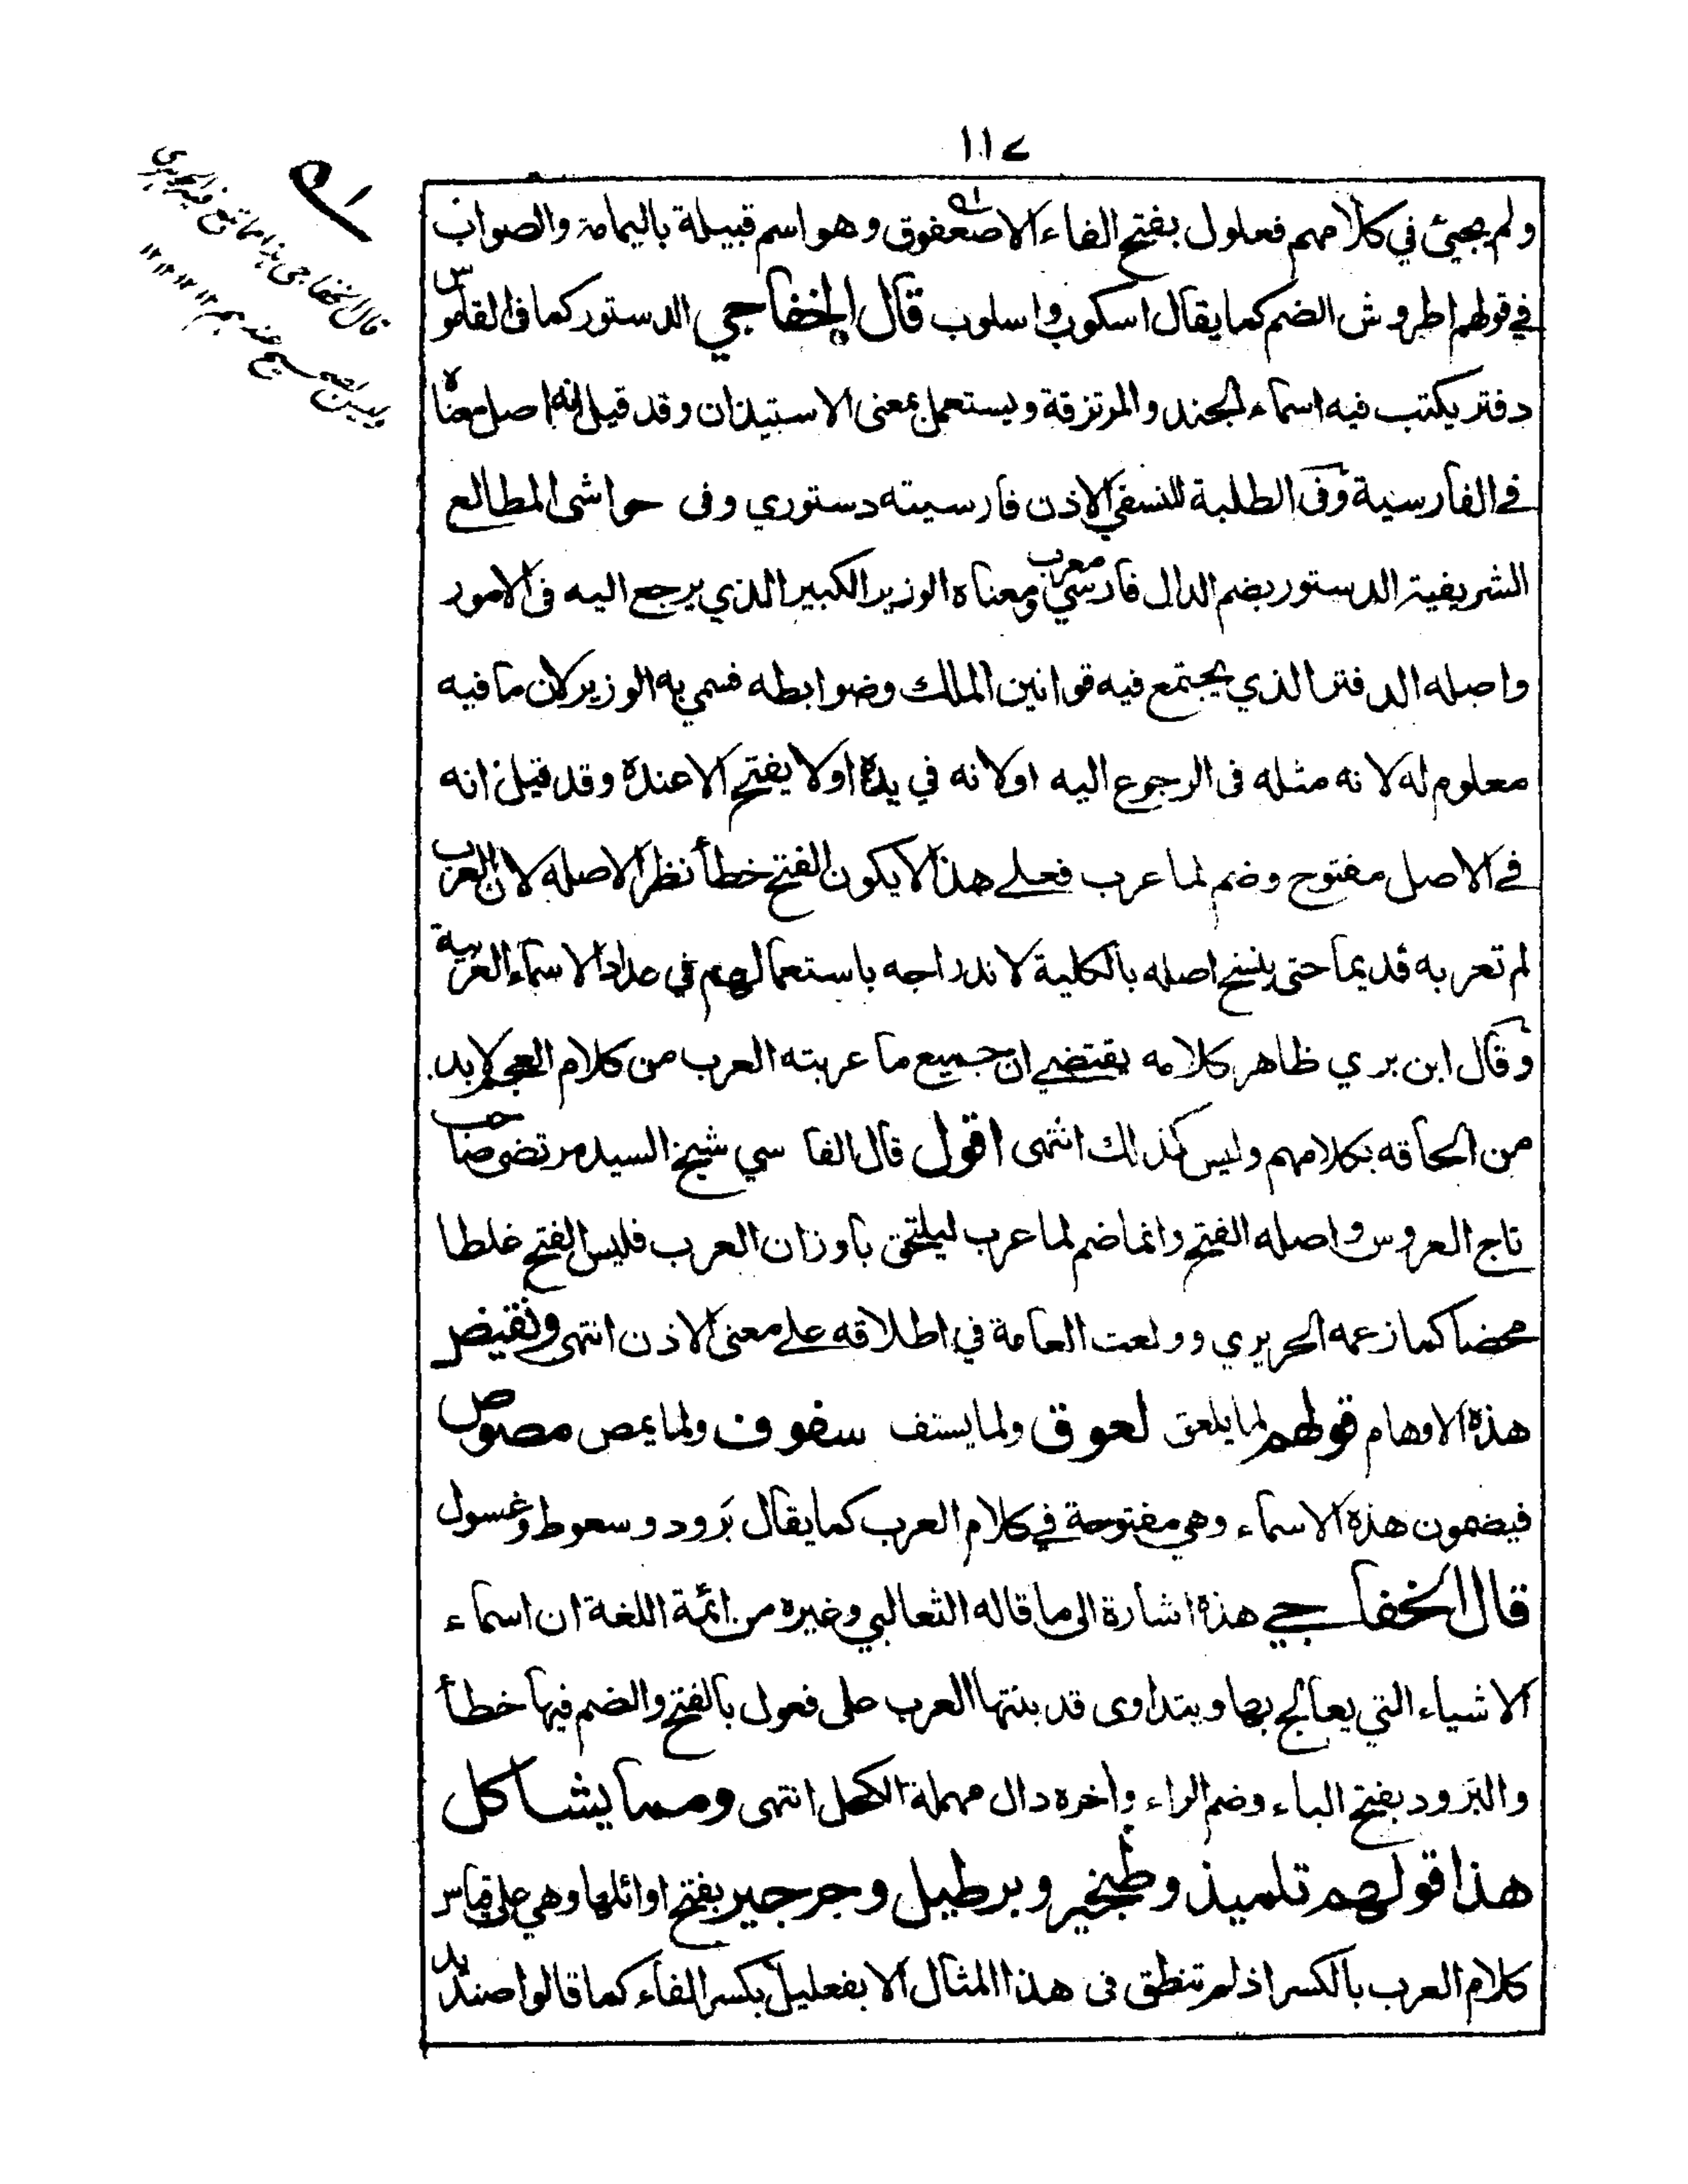 ١١٧
ولم يجيئ في كلامهم فعلول بفتح الفاء الا صعفوق وهو اسم قبيلة باليمامة والصواب
في قولهم اطروش الضم كما يقال اسكوب واسلوب قال الخفاجي الدستور كما في القاموس
دفتر يكتب فيه اسماء الجند والمرتزقة ويستعمل بمعنى الاستيذان وقد قيل انه اصل معناه
في الفارسية وفي الطلبة للنسفي الاذن فارسيته دستوري وفي حواشي المطالع
الشريفية الدستور بضم الدال فارسي معرب ومعناه الوزير الكبير الذي يرجع اليه في الامور
واصله الدفتر الذي يجتمع فيه قوانين الملك وضوابطه فسمي به الوزير لان ما فيه
معلوم له لانه مثله في الرجوع اليه او لانه في يده او لا يفتح الا عنده وقد قيل انه
في الاصل مفتوح وضم لما عرب فعلى هذا لا يكون الفتح خطأ نظرا لاصله لان العرب
لم تعربه قديما حتى ينسخ اصله بالكلية لاندراجه باستعمالهم في عداد الاسماء العربية
وقال ابن بري ظاهر كلامه يقتضي ان جميع ما عربته العرب من كلام العجم لا بد
من الحاقه بكلامهم وليس كذلك انتهى اقول قال الفاسي شيخ السيد مرتضى صاحب
تاج العروس واصله الفتح وانما ضم لما عرب ليلتحق باوزان العرب فليس الفتح غلطا
محضا كما زعمه الحريري وولعت العامة في اطلاقه على معنى الاذن انتهى ونقيض
هذه الاوهام قولهم لما يلعق لعوق ولما يستف سفوف ولما يمص مصوص
فيضمون هذه الاسماء وهي مفتوحة في كلام العرب كما يقال بَرود وسعوط وغسول
قال الخفاجي هذه اشارة الى ما قاله الثعالبي وغيره من ائمة اللغة ان اسماء
الاشياء التي يعالج بها ويتداوى قد بنتها العرب على فعول بالفتح والضم فيها خطأ
والبَرود بفتح الباء وضم الراء وأخره دال مهملة الكحل انتهى ومما يشاكل
هذا قولهم تلميذ وطنجير وبرطيل وجرجير بفتح اوائلها وهي على قياس
كلام العرب بالكسر اذ لم تنطق في هذا المثال الا بفعليل بكسر الفاء كما قالوا صنديد
قال الخفاجي هذا مما تبع فيه الجوهري